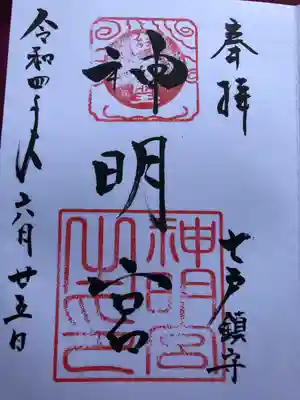 奉拝
七戸鎮守
神明宮
神明宮之印
令和四年六月廿五日